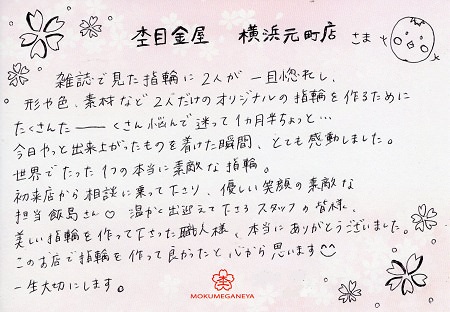 杢目金屋 横浜元町店 さま
雑誌で見た指輪に2人が一目惚れし、
形や色、素材など2人だけのオリジナルの指輪を作るために
たくさんたーーーくさん悩んで迷って1ヵ月半ちょっと…
今日やっと出来上がったものを着けた瞬間、とても感動しました。
世界でたった1つの本当に素敵な指輪。
初来店から相談に乗って下さり、優しい笑顔の素敵な
担当飯島さん♡ 温かく出迎えて下さるスタッフの皆様、
美しい指輪を作って下さった職人様、本当にありがとうございました。
このお店で指輪を作って良かったと心から思います
一生大切にします。
MOKUMEGANEYA